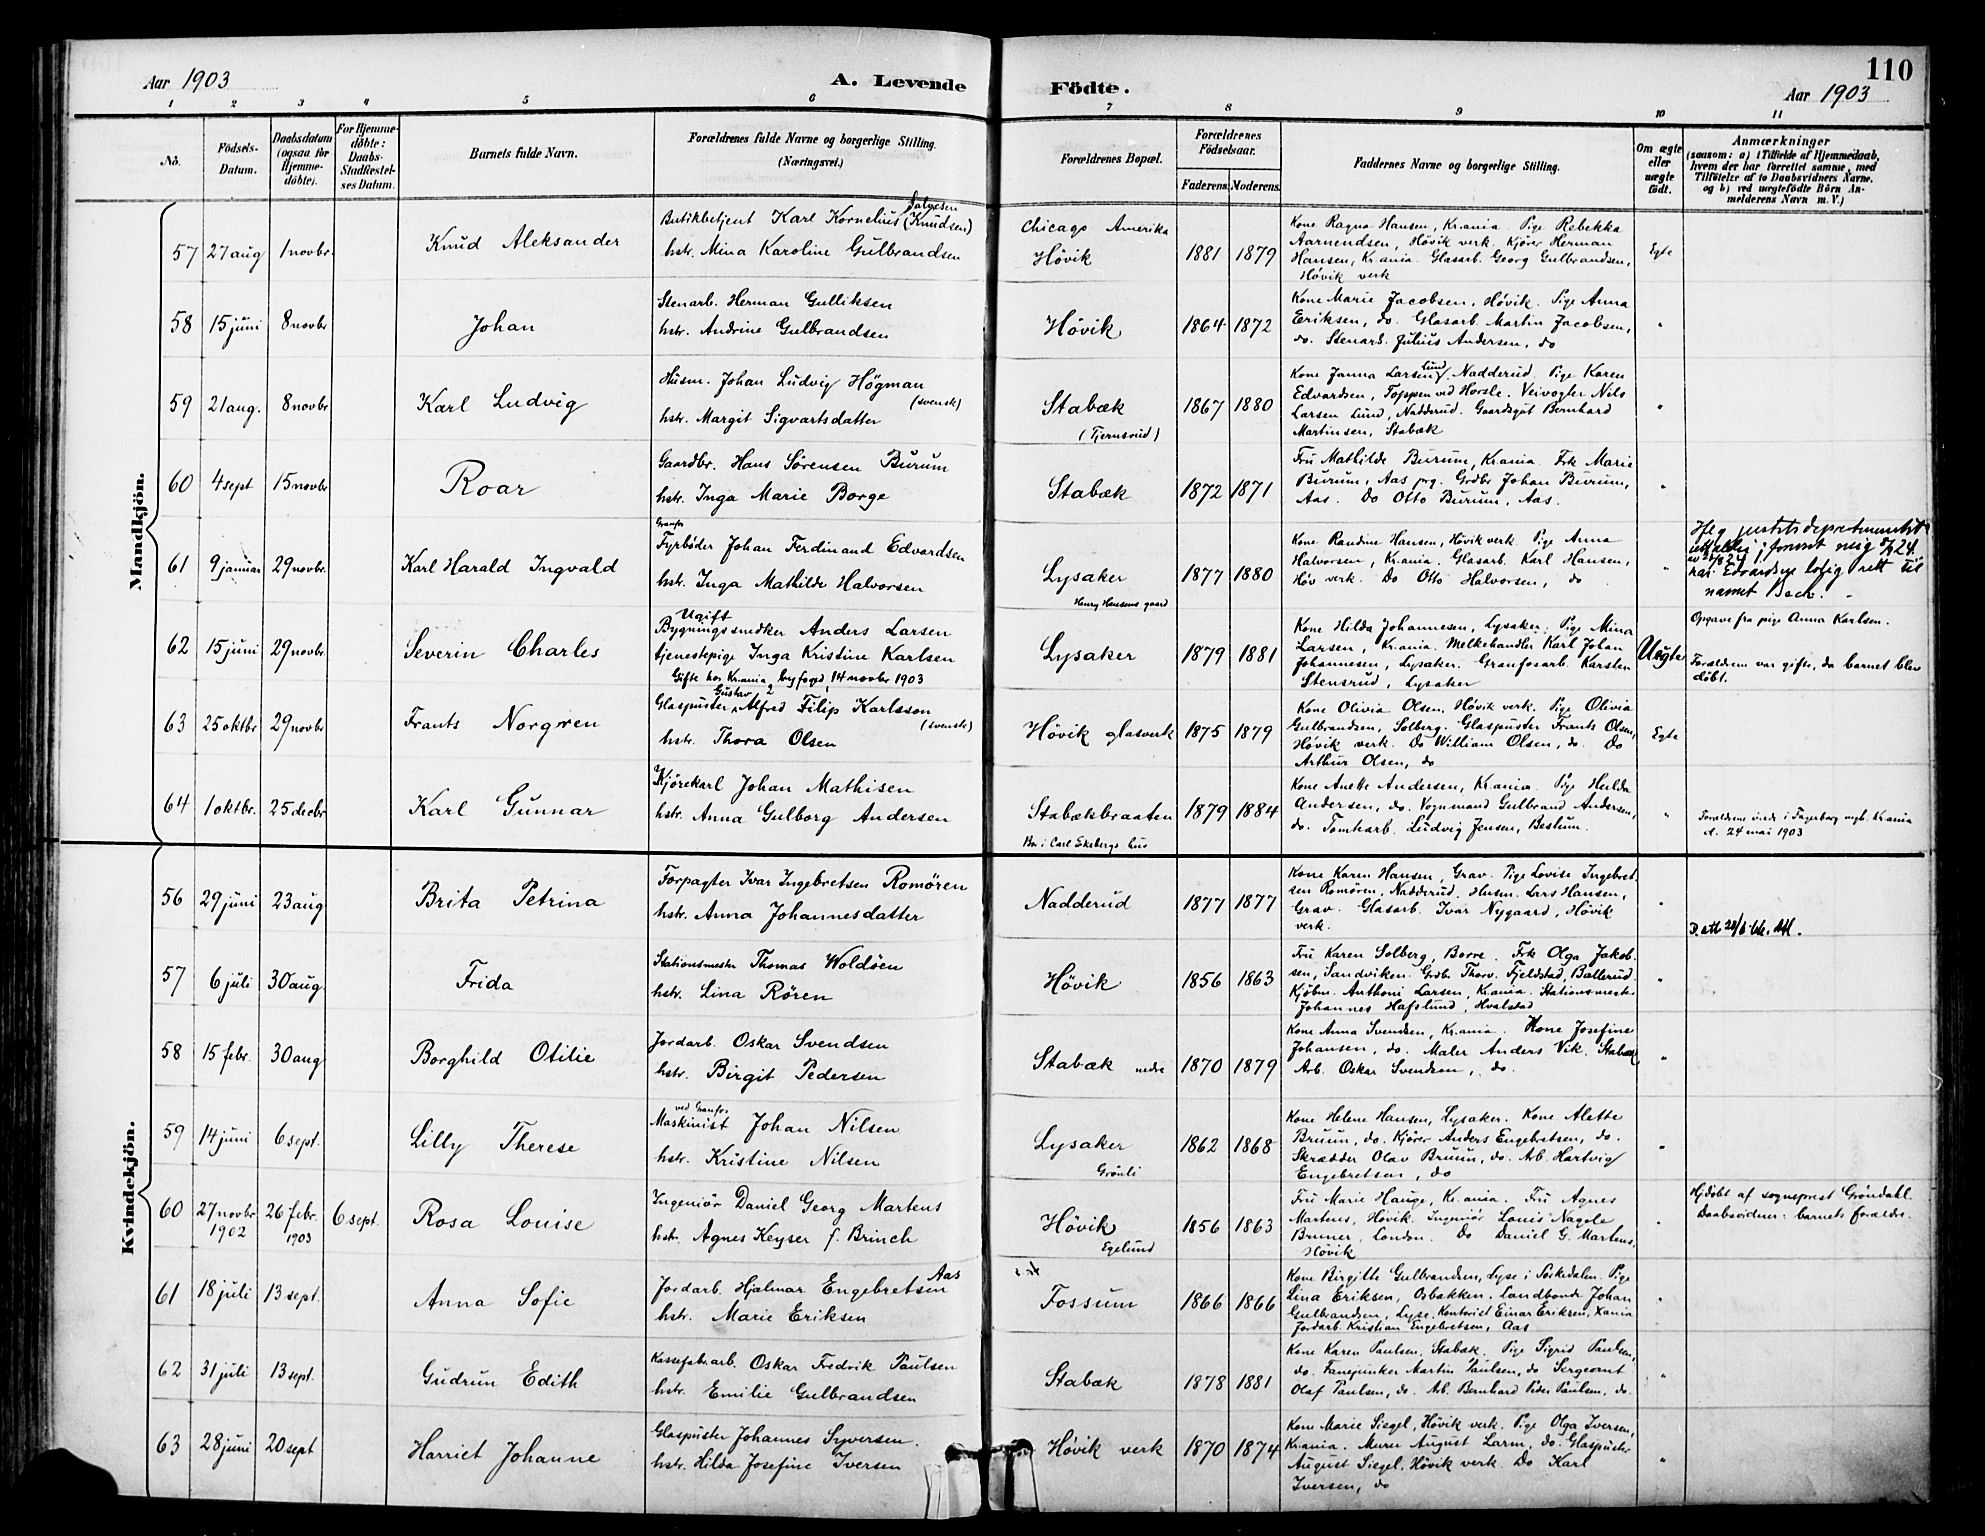 110
Aar 1903
A. Levende Födte.
Aar 1903
1 2 3 4 5 6 7 8 9 10 11
No.
Födsels-Datum.
Daabsdatum (ogsaa for Hjemme-döbte).
For Hjemme-döbte: Daabs-Stadfæstel-ses Datum.
Barnets fulde Navn.
Forældrenes fulde Navne og borgerlige Stilling. (Næringsvei.)
Forældrenes Bopæl.
Forældrenes Födselsaar.
Faderens. Moderens.
Faddernes Navne og borgerlige Stilling.
Om ægte eller uægte födt.
Anmærkninger
(saasom: a) i Tilfælde af Hjemmedaab,
hvem der har forrettet samme, med
Tilföielse af to Daabsvidners Navne,
og b) ved uægtefödte Börn An-
melderens Navn m. V.)
Mandkjön.
57 27 aug 1 novbr.
Knud Aleksander
Butikbetjent Karl Kornelius (Knudsen)
hstr. Mina Karoline Gulbrandsen
Chicago Amerika
Høvik
1881 1879
Kone Ragna Hansen, Kr.ania. Pige Rebekka
Aarnendsen, Høvik verk. Kjører Herman
Hansen, Kr.ania. Glasarb. Georg Gulbrandsen,
Høvik verk
Egte
58 15 juni 8 novbr
Johan
Stenarb. Herman Gulliksen
hstr. Andrine Gulbrandsen
Høvik
1864 1872
Kone Marie Jacobsen, Høvik. Pige Anna
Eriksen, do. Glasarb. Martin Jacobsen,
do. Stenarb. Julius Andersen, do
"
59 21 aug. 8 novbr
Karl Ludvig
Husm. Johan Ludvig Högman
(svensk)
hstr. Margit Sigvartsdatter
Stabæk
(Tjernsrud)
1867 1880
Kone Janna Larsen Lund, Nadderud. Pige Karen
Edvardsen, Toppen ved Horsle. Veivogter Nils
Larsen Lund, Nadderud. Gaardsgut Bernhard
Martinsen, Stabæk
"
60 4 sept 15 novbr
Roar
Gaardbr. Hans Sørensen Burum
hstr. Inga Marie Borge
Stabæk
1872 1871
Fru Mathilde Burum, Kr.ania. Frk Marie
Burum, Aas prg. Grdbr Johan Burum,
Aas. Do Otto Burum, Aas.
"
61 9 januar 29 novbr.
Karl Harald Ingvald
Granfos
Fyrbøder Johan Ferdinand Edvardsen
hstr. Inga Mathilde Halvorsen
Lysaker
Henry Hansens gaard
1877 1880
Kone Randine Hansen, Høvik verk. Pige Anna
Halvorsen, Kr.ania. Glasarb. Karl Hansen,
Høv verk. Do Otto Halvorsen, do
"
har Edvardsen lovlig rett til
navnet Beck.
62 15 juni 29 novbr.
Severin Charles
Ugift
Bygningssnedker Anders Larsen
tjenestepige Inga Kristine Karlsen
Gifte hos Kr.ania byfoged, 14 novbr 1903
Lysaker
1879 1881
Kone Hilda Johannesen, Lysaker. Pige Mina
Larsen, Kr.ania. Melkehandler Karl Johan
Johannesen, Lysaker. Granfosarb. Karsten
Stensrud, Lysaker
Uegte
Opgave fra pige Anna Karlsen.
Forældrene var gifte, da barnet blev
døbt.
63 25 oktbr 29 novbr
Frants Norgren
Gustav
Glaspuster Alfred Filip Karlsson
(svensk)
hstr. Thora Olsen
Høvik glasverk
1875 1879
Kone Olivia Olsen, Høvik verk. Pige Olivia
Gulbrandsen, Solberg. Glaspuster Frants Olsen,
Høvik verk. Do William Olsen, do. Do
Arthur Olsen, do
Egte
64 1 oktbr. 25 decbr
Karl Gunnar
Kjørekarl Johan Mathisen
hstr. Anna Gulborg Andersen
Stabækbraaten
Bor i Carl Ekebergs hus
1879 1884
Kone Anette Andersen, Kr.ania. Pige Hulda
Andersen, do. Vognmand Gulbrand Andersen,
do. Tomtearb. Ludvig Jensen, Bestum.
"
Forældrene viede i Fagerborg mgh. Kr.ania
d. 24 mai 1903
Kvindekjön.
56 29 juni 23 aug
Brita Petrina
Forpagter Ivar Ingebretsen Romören
hstr. Anna Johannesdatter
Nadderud
1877 1877
Kone Karen Hansen, Grav. Pige Lovise Ingebret
sen Romören, Nadderud. Husm. Lars Hansen,
Grav. Glasarb. Ivar Nygaard, Høvik
verk.
"
57 6 juli 30 aug.
Frida
Stationsmester Thomas Woldsen
hstr. Lina Rören
Høvik
1856 1863
Fru Karen Solberg, Borre. Frk Olga Jakob-
sen, Sandviken. Grdbr Thorv. Fjeldstad, Ballerud.
Kjøbm. Anthoni Larsen, Kr.ania. Stationsmester
Johannes Hafslund, Hvalstad
"
58 15 febr. 30 aug
Borghild Otilie
Jordarb. Oskar Svendsen
hstr. Birgit Pedersen
Stabæk nedre
1870 1879
Kone Anna Svendsen, Kr.ania. Kone Josefine
Johansen, do. Maler Anders Vik, Stabæk
Arb. Oskar Svendsen, do.
"
59 14 juni 6 sept.
Lilly Therese
ved Granfos
Maskinist Johan Nilsen
hstr. Kristine Nilsen
Lysaker
Grönli
1862 1868
Kone Helene Hansen, Lysaker. Kone Alette
Bruun, do. Kjører Anders Engebretsen, do.
Skrædder Olav Bruun, do. Arb. Hartvig
Engebretsen, do
"
60 27 novbr 1902 26 febr. 1903 6 sept.
Rosa Louise
Ingeniør Daniel Georg Martens
hstr. Agnes Keyser f. Brinch
Høvik
Egelund
1856 1863
Fru Marie Hauge, Kr.ania. Fru Agnes
Martens, Høvik. Ingeniør Louis Nagele
Bruner, London. Do Daniel G. Martens,
Høvik
"
Hjdøbt af sogneprest Gröndahl.
Daabsvidner: barnets forældre.
61 18 juli 13 sept.
Anna Sofie
Jordarb. Hjalmar Engebretsen Aas
hstr. Marie Eriksen
Fossum
1866 1866
Kone Birgitte Gulbrandsen, Lyse i Sørkedalen. Pige
Lina Eriksen, Osbakken. Landbonde Johan
Gulbrandsen, Lyse. Kontorist Einar Eriksen, Xania
Jordarb. Kristian Engebretsen, Aas
"
62 31 juli 13 sept.
Gudrun Edith
Kassefabr.arb. Oskar Fredrik Paulsen
hstr. Emilie Gulbrandsen
Stabæk
1878 1881
Kone Karen Paulsen, Stabæk. Pige Sigrid Paulsen,
do. Fanejunker Martin Paulsen, do Sergeant
Olaf Paulsen, do. Arb. Bernhard Peder Paulsen, do.
"
63 28 juni 20 sept
Harriet Johanne
Glaspuster Johannes Syversen.
hstr. Hilda Josefine Iversen
Høvik verk
1870 1874
Kone Marie Siegel, Høvik verk. Pige Olga Iversen,
Kr.ania. Murer August Larm, do. Glaspuster
August Siegel, Høvik verk. Do Karl
Iversen, do
"